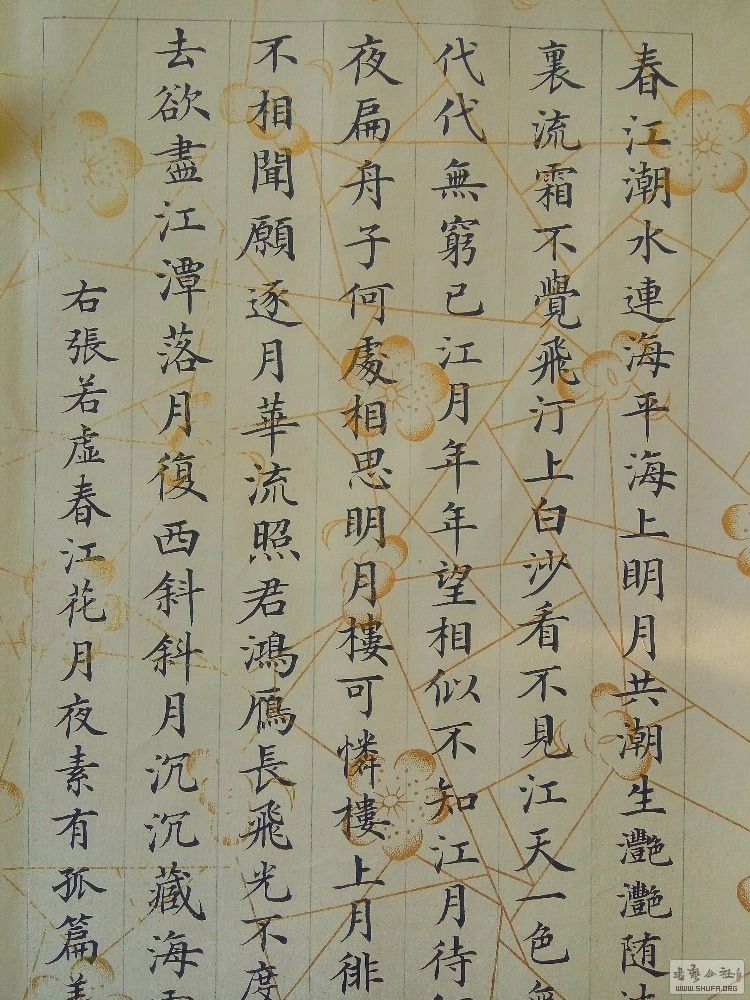 春江潮水連海平海上明月共潮生灧灧随
裏流霜不覺飛汀上白沙看不見江天一色
代代無窮已江月年年望相似不知江月待
夜扁舟子何處相思明月樓可憐樓上月徘
不相聞願逐月華流照君鴻雁長飛光不度
去欲盡江潭落月復西斜斜月沉沉藏海
右張若虛春江花月夜素有孤篇
WWW.SHUFA.ORG